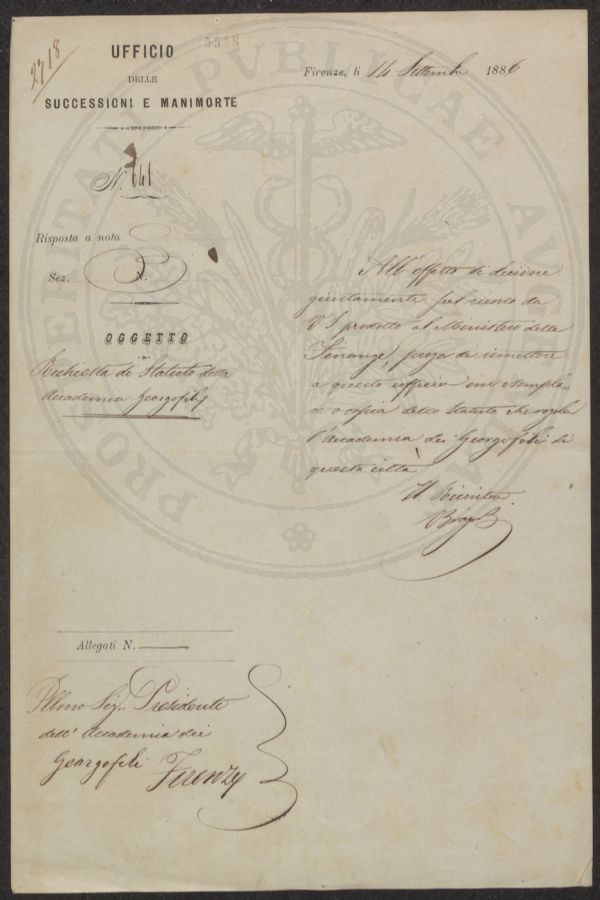 2718
UFFICIO
DELLE
SUCCESSIONI E MANIMORTE
5598
Firenze, li 14 Settembre 1886
N. 641
Risposta a nota
Sez. N.
OGGETTO
Richiesta di Statuto della
Accademia Georgofili
All'effetto di
giustamente sul ricorso da
V S prodotto al Ministero delle
Finanze, prego di rimettere
a questo ufficio un esempla-
re o copia dello Statuto che regola
l'Accademia dei Georgofili di
questa città
Il Ricevitore
Allegati N.
Illmo Sig. Presidente
dell' Accademia dei
Georgofili Firenze
PROSPERITATI PUBLICAE AUGENDAE